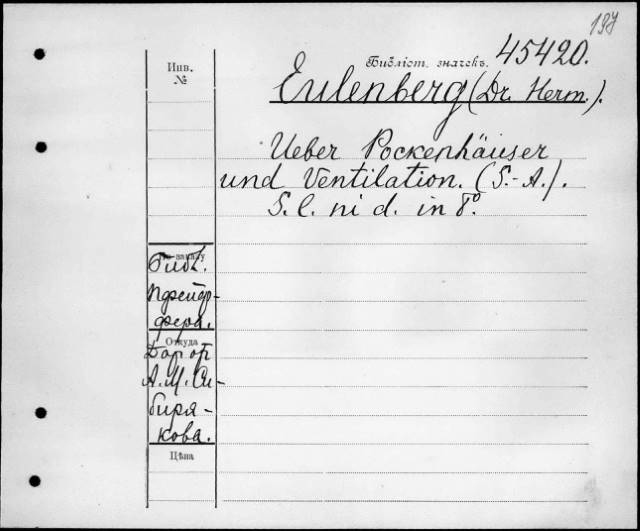 197
Инв.
№
Библіот. значекъ. 45420.
Eulenberg (Dr. Herm.).
Ueber Pockenhäuser
und Ventilation. (S.-A.).
S. l. ni d. in 8º.
По заказу
Библ.
Пфейф-
фера.
Откуда
Дар от
А. М. Си-
биря-
кова.
Цѣна